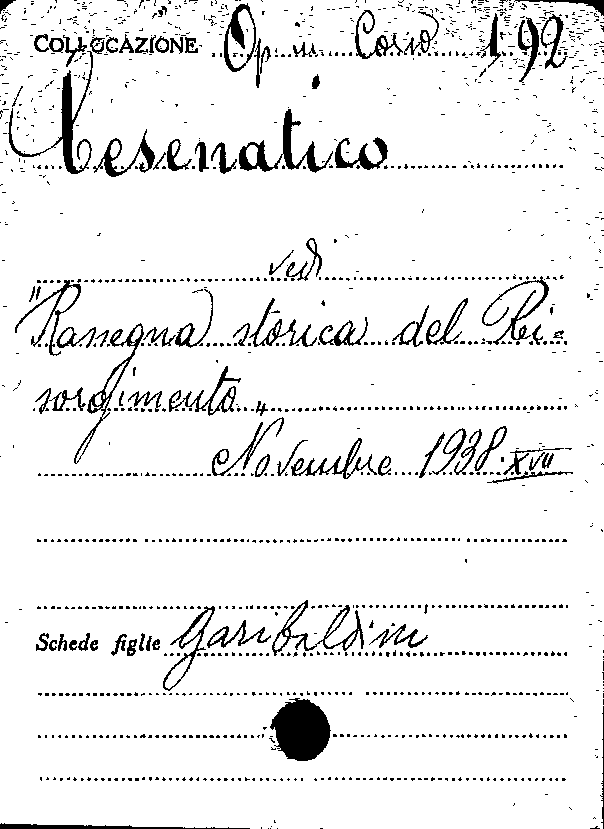 COLLOCAZIONE Op in Corso 1,92
Cesenatico
vedi
"Rassegna storica del Ri=
sorgimento„
Novembre 1938·XVII
Schede figlie Garibaldini